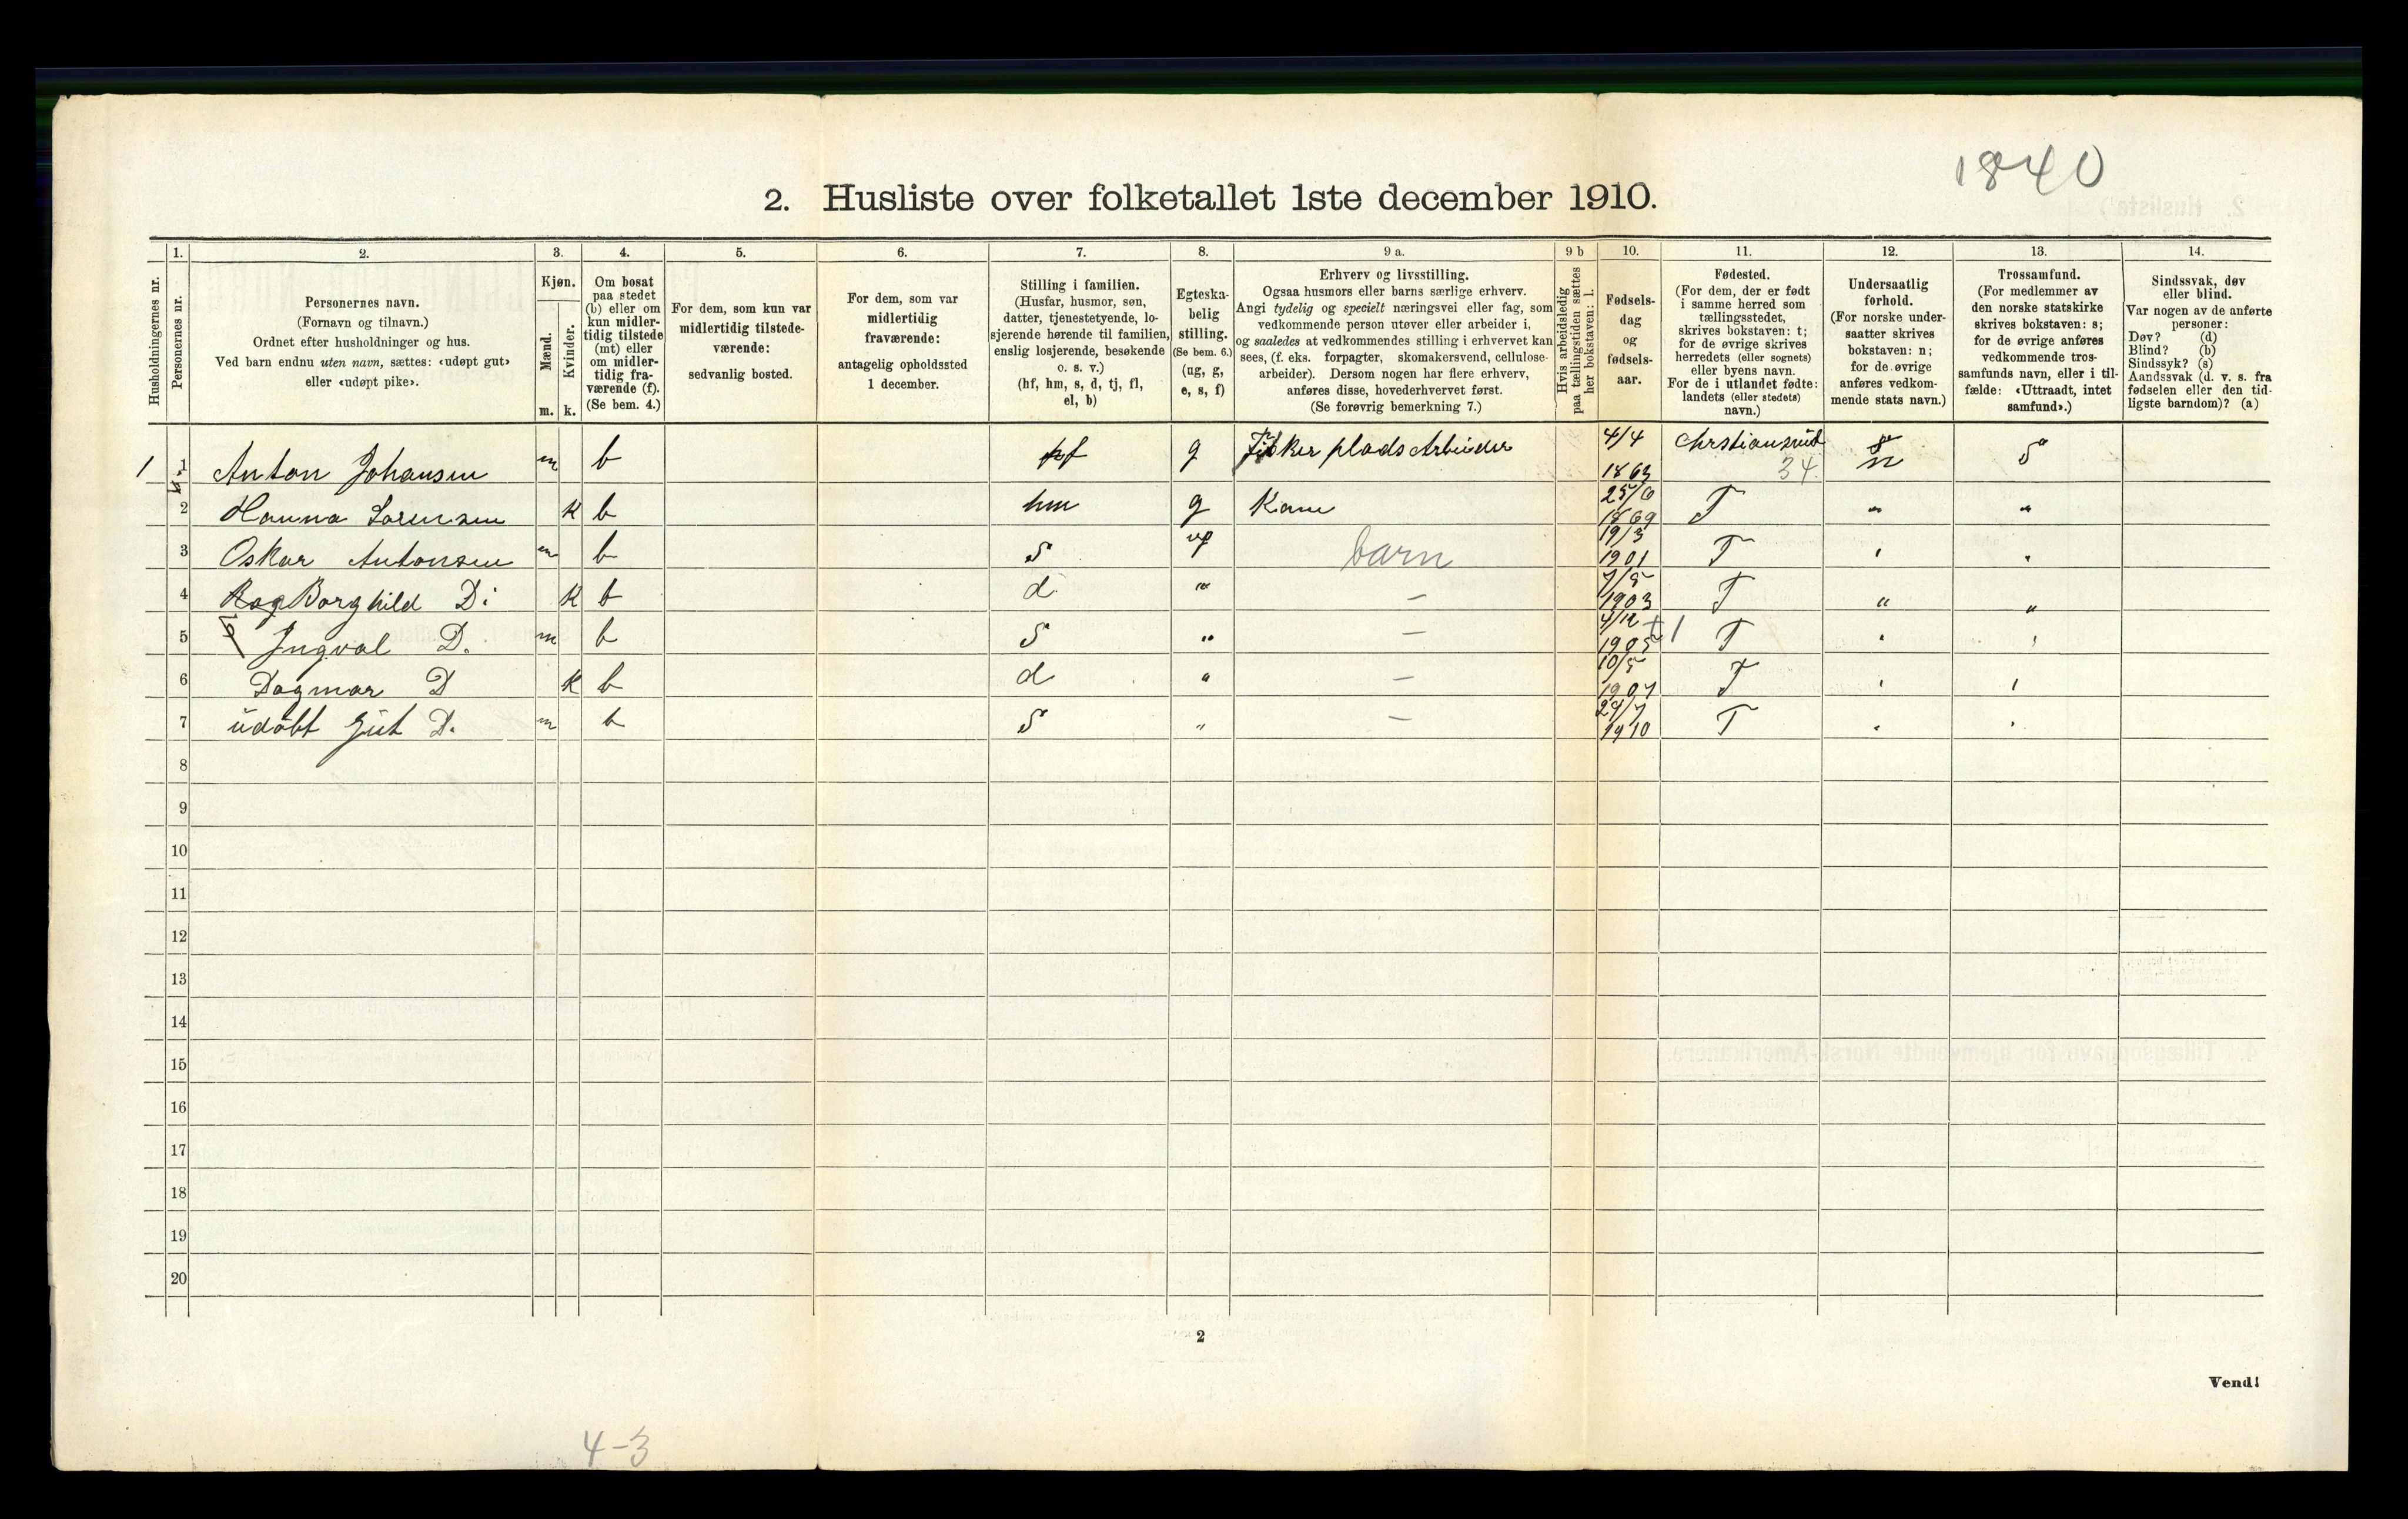 1840
2. Husliste over folketallet 1ste december 1910.
Husholdningernes nr.
1.
Personernes nr.
2.
Personernes navn.
(Fornavn og tilnavn.)
Ordnet efter husholdninger og hus.
Ved barn endnu uten navn, sættes: «udøpt gut»
eller «udøpt pike».
3.
Kjøn.
Mænd.
Kvinder.
m. k.
4.
Om bosat
paa stedet
(b) eller om
kun midler-
tidig tilstede
(mt) eller
om midler-
tidig fra-
værende (f).
(Se bem. 4.)
5.
For dem, som kun var
midlertidig tilstede-
værende:
sedvanlig bosted.
6.
For dem, som var
midlertidig
fraværende:
antagelig opholdssted
1 december.
7.
Stilling i familien.
(Husfar, husmor, søn,
datter, tjenestetyende, lo-
sjerende hørende til familien,
enslig losjerende, besøkende
o. s. v.)
(hf, hm, s, d, tj, fl,
el, b)
8.
Egteska-
belig
stilling.
(Se bem. 6.)
(ug, g,
e, s, f)
9 a.
Erhverv og livsstilling.
Ogsaa husmors eller barns særlige erhverv.
Angi tydelig og specielt næringsvei eller fag, som
vedkommende person utøver eller arbeider i,
og saaledes at vedkommendes stilling i erhvervet kan
sees, (f. eks. forpagter, skomakersvend, cellulose-
arbeider). Dersom nogen har flere erhverv,
anføres disse, hovederhvervet først.
(Se forøvrig bemerkning 7.)
9 b
Hvis arbeidsledig
paa tællingstiden sættes
her bokstaven: l.
10.
Fødsels-
dag
og
fødsels-
aar.
11.
Fødested.
(For dem, der er født
i samme herred som
tællingsstedet,
skrives bokstaven: t;
for de øvrige skrives
herredets (eller sognets)
eller byens navn.
For de i utlandet fødte:
landets (eller stedets)
navn.)
12.
Undersaatlig
forhold.
(For norske under-
saatter skrives
bokstaven: n;
for de øvrige
anføres vedkom-
mende stats navn.)
13.
Trossamfund.
(For medlemmer av
den norske statskirke
skrives bokstaven: s;
for de øvrige anføres
vedkommende tros-
samfunds navn, eller i til-
fælde: «Uttraadt, intet
samfund».)
14.
Sindssvak, døv
eller blind.
Var nogen av de anførte
personer:
Døv? (d)
Blind? (b)
Sindssyk? (s)
Aandssvak (d. v. s. fra
fødselen eller den tid-
ligste barndom)? (a)
1 1 Anton Johansen m b hf g Fisker plads Arbeider 4/4 1863 Chrstiansund 34. n S
2 Hanna Sorensen k b hm g Kone 25/6 1869 T " "
3 Oskar Antonsen m b S ug barn 19/3 1901 T " "
4 Borghild D: k b d " – 7/5 1903 T " "
5 Ingval D. m b S " – 4/12 1905 T " "
6 Dagmar D k b d " – 10/5 1907 T " "
7 udöbt Gut D. m b S " – 29/7 1910 T " "
8
9
10
11
12
13
14
15
16
17
18
19
20
2
Vend!
4-3